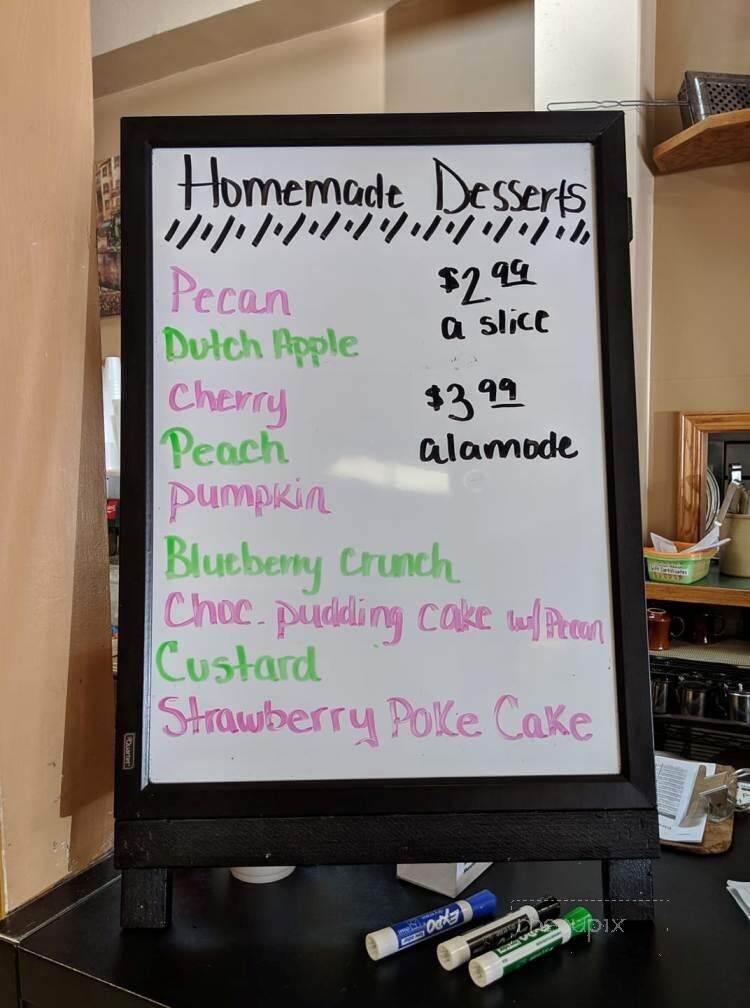 Homemade Desserts
Pecan
$2.99
a slice
Dutch Apple
Cherry
$3.99
alamode
Peach
pumpkin
Blueberry crunch
Choc. pudding cake w/ Pecan
Custard
Strawberry Poke Cake
Quartet
EXPO
menupix